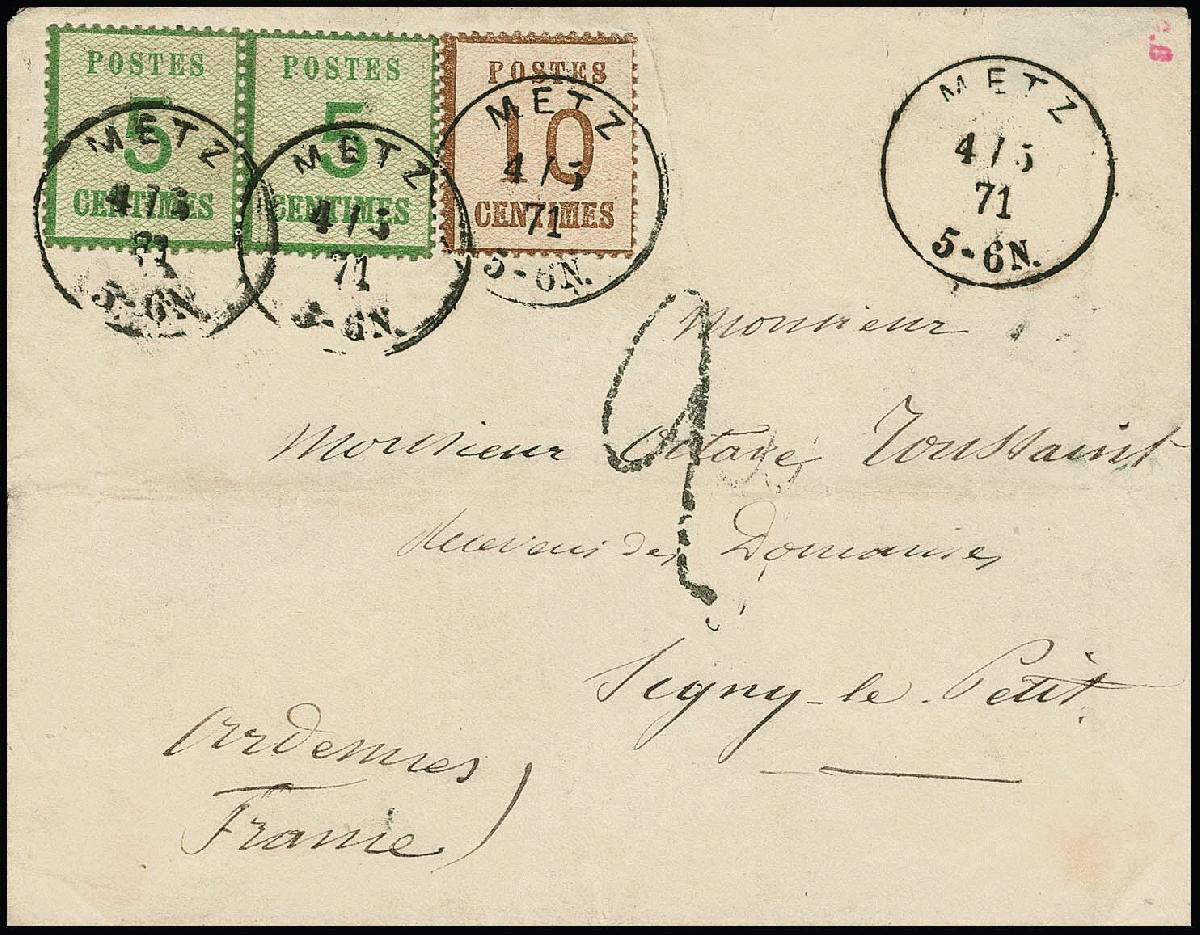 POSTES
5
CENTIMES
POSTES
5
CENTIMES
POSTES
10
CENTIMES
METZ
4/5
71
5-6N.
METZ
4/5
71
5-6N.
METZ
4/5
71
5-6N.
METZ
4/5
71
5-6N.
2
Monsieur
Monsieur Octave Toussaint
Receveur des Domaines
Signy-le-Petit.
Ardennes
France)